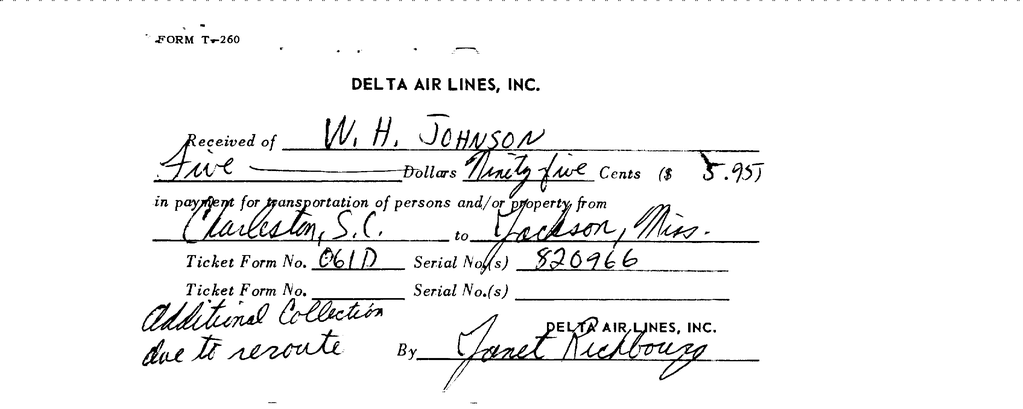 FORM T-260
DELTA AIR LINES, INC.
Received of W. H. JOHNSON
Five Dollars Ninety five Cents ($ 5.95)
in payment for transportation of persons and/or property from
Charleston, S.C. to Jackson, Miss.
Ticket Form No. 061D Serial No.(s) 820966
Ticket Form No. Serial No.(s)
Additional Collection
due to reroute
DELTA AIR LINES, INC.
By Janet Richbourg